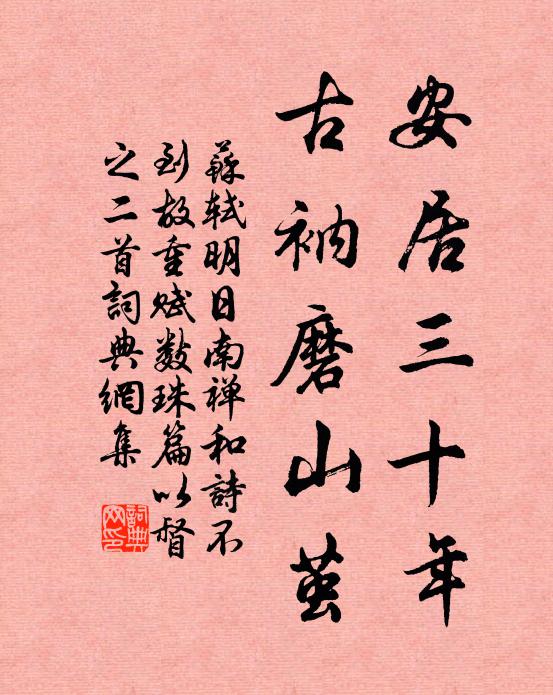 安居三十年
古衲磨山茧
蘇軾明日南禅和詩不
到故重赋數珠篇以督
之二首詞典網集
詞典网印